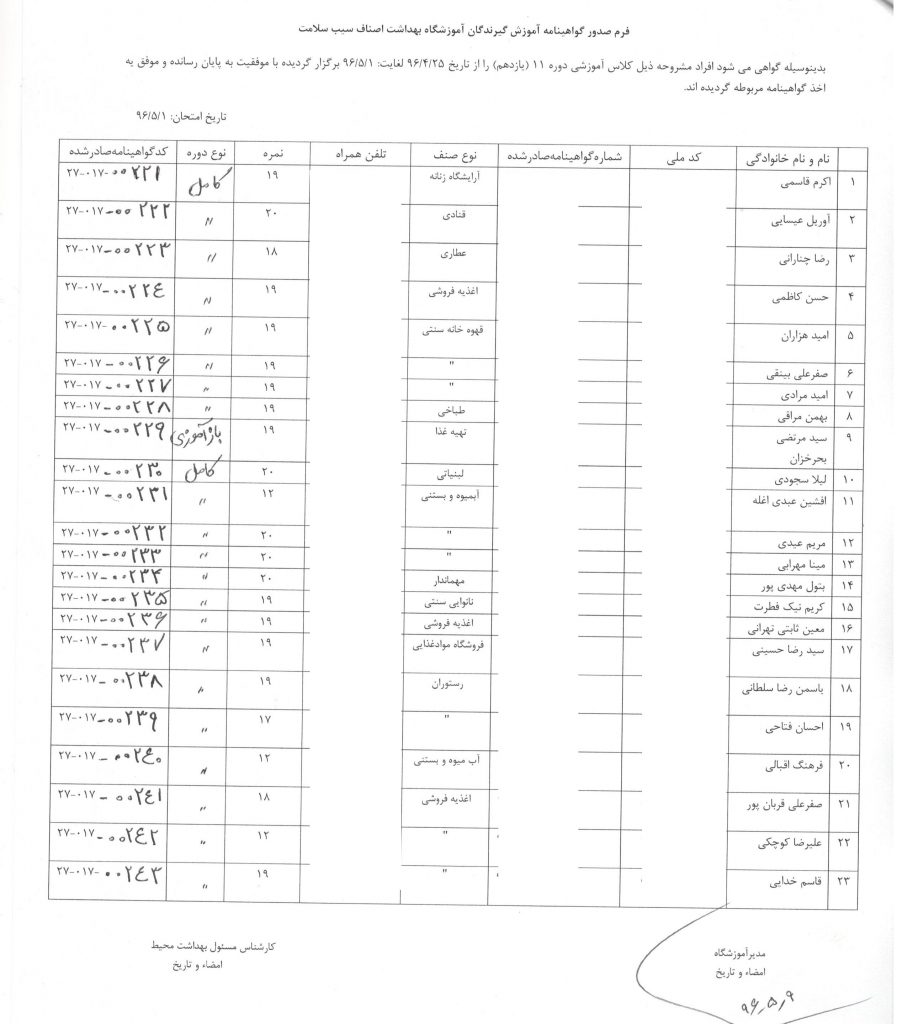 فرم صدور گواهینامه آموزش گیرندگان آموزشگاه بهداشت اصناف سیب سلامت
بدینوسیله گواهی می شود افراد مشروحه ذیل کلاس آموزشی دوره ۱۱ (یازدهم) را از تاریخ ۹۶/۴/۲۵ لغایت: ۹۶/۵/۱ برگزار گردیده با موفقیت به پایان رسانده و موفق به
اخذ گواهینامه مربوطه گردیده اند.
تاریخ امتحان: ۹۶/۵/۱
نام و نام خانوادگی کد ملی شماره گواهینامه صادرشده نوع صنف تلفن همراه نمره نوع دوره کد گواهینامه صادرشده
۱ اکرم قاسمی آرایشگاه زنانه ۱۹ کامل ۲۷-۰۱۷-۰۰۲۲۱
۲ آوریل عیسایی قنادی ۲۰ " ۲۷-۰۱۷-۰۰۲۲۲
۳ رضا چنارانی عطاری ۱۸ " ۲۷-۰۱۷-۰۰۲۲۳
۴ حسن کاظمی اغذیه فروشی ۱۹ " ۲۷-۰۱۷-۰۰۲۲۴
۵ امید هزاران قهوه خانه سنتی ۱۹ " ۲۷-۰۱۷-۰۰۲۲۵
۶ صفرعلی بینقی " ۱۹ " ۲۷-۰۱۷-۰۰۲۲۶
۷ امید مرادی " ۱۹ " ۲۷-۰۱۷-۰۰۲۲۷
۸ بهمن مراقی طباخی ۱۹ " ۲۷-۰۱۷-۰۰۲۲۸
۹ سید مرتضی تهیه غذا ۱۹ بازآموزی ۲۷-۰۱۷-۰۰۲۲۹
بحرخزان
۱۰ لیلا سجودی لبنیاتی ۲۰ کامل ۲۷-۰۱۷-۰۰۲۳۰
۱۱ افشین عبدی اغله آبمیوه و بستنی ۱۲ " ۲۷-۰۱۷-۰۰۲۳۱
۱۲ مریم عبدی " ۲۰ " ۲۷-۰۱۷-۰۰۲۳۲
۱۳ مینا مهرابی " ۲۰ " ۲۷-۰۱۷-۰۰۲۳۳
۱۴ بتول مهدی پور مهماندار ۲۰ " ۲۷-۰۱۷-۰۰۲۳۴
۱۵ کریم نیک فطرت نانوایی سنتی ۱۹ " ۲۷-۰۱۷-۰۰۲۳۵
۱۶ معین ثابتی تهرانی اغذیه فروشی ۱۹ " ۲۷-۰۱۷-۰۰۲۳۶
۱۷ سید رضا حسینی فروشگاه موادغذایی ۱۹ " ۲۷-۰۱۷-۰۰۲۳۷
۱۸ یاسمن رضا سلطانی رستوران ۱۹ " ۲۷-۰۱۷-۰۰۲۳۸
۱۹ احسان فتاحی " ۱۷ " ۲۷-۰۱۷-۰۰۲۳۹
۲۰ فرهنگ اقبالی آب میوه و بستنی ۱۲ " ۲۷-۰۱۷-۰۰۲۴۰
۲۱ صفرعلی قربان پور اغذیه فروشی ۱۸ " ۲۷-۰۱۷-۰۰۲۴۱
۲۲ علیرضا کوچکی " ۱۲ " ۲۷-۰۱۷-۰۰۲۴۲
۲۳ قاسم خدایی " ۱۹ " ۲۷-۰۱۷-۰۰۲۴۳
مدیرآموزشگاه کارشناس مسئول بهداشت محیط
امضاء و تاریخ امضاء و تاریخ
۹۶_۵_۹